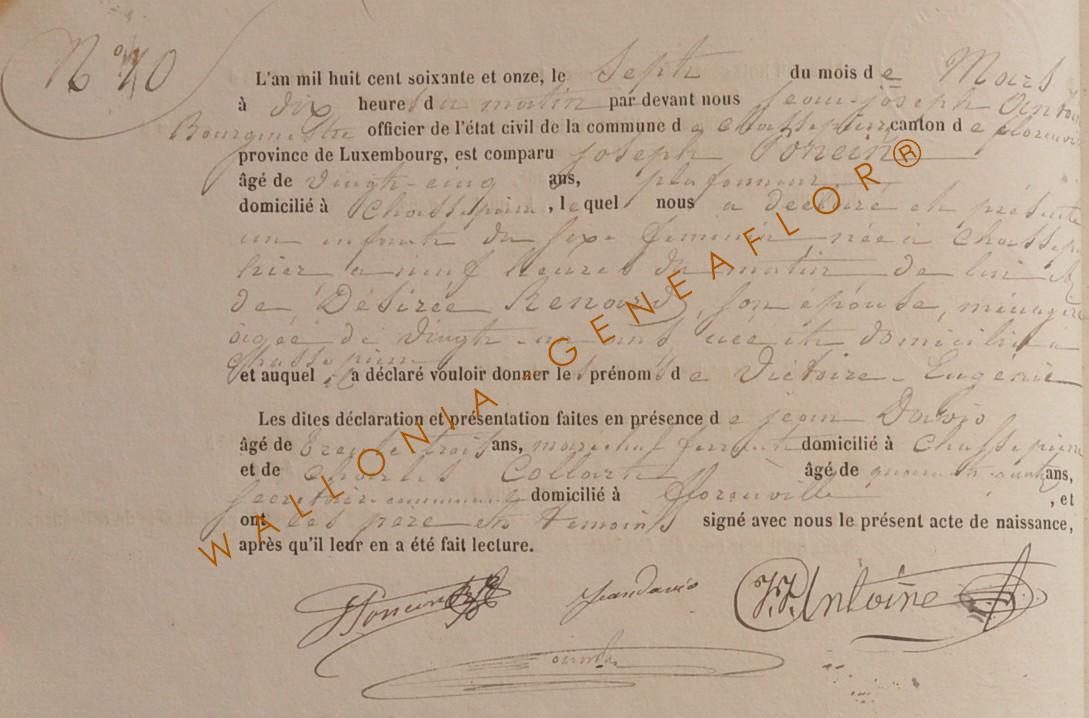 N° 40
L'an mil huit cent soixante et onze, le sept du mois de Mars
à dix heures du matin par devant nous jean-joseph Antoi
Bourgmestre officier de l'état civil de la commune de chassepierre canton de florenvi
province de Luxembourg, est comparu joseph Poncin
âgé de vingt-cinq ans, plafonneur
domicilié à Chassepierre, lequel nous a déclaré et présenté
un enfant du sexe féminin née à Chassep
hier à neuf heures du matin de lui et
de Désirée Renard, son épouse, ménagère
âgée de vingt ans, née et domiciliée à
Chassepierre
et auquel il a déclaré vouloir donner les prénoms de Victoire-Eugénie
Les dites déclaration et présentation faites en présence de jean Davio
âgé de trente trois ans, maréchal ferrant domicilié à Chassepierre
et de Charles Collart âgé de ans,
secrétaire communal domicilié à florenville, et
ont les père et témoins signé avec nous le présent acte de naissance,
après qu'il leur en a été fait lecture.
JPoncin Jean Davio J.J. Antoine
WALLONIA - GENEAFLOR®